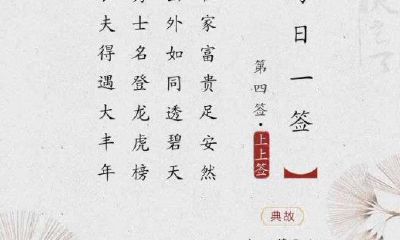 日一签
第四签·上上签
家富贵足安然
外如同透碧天
士名登龙虎榜
夫得遇大丰年
典故